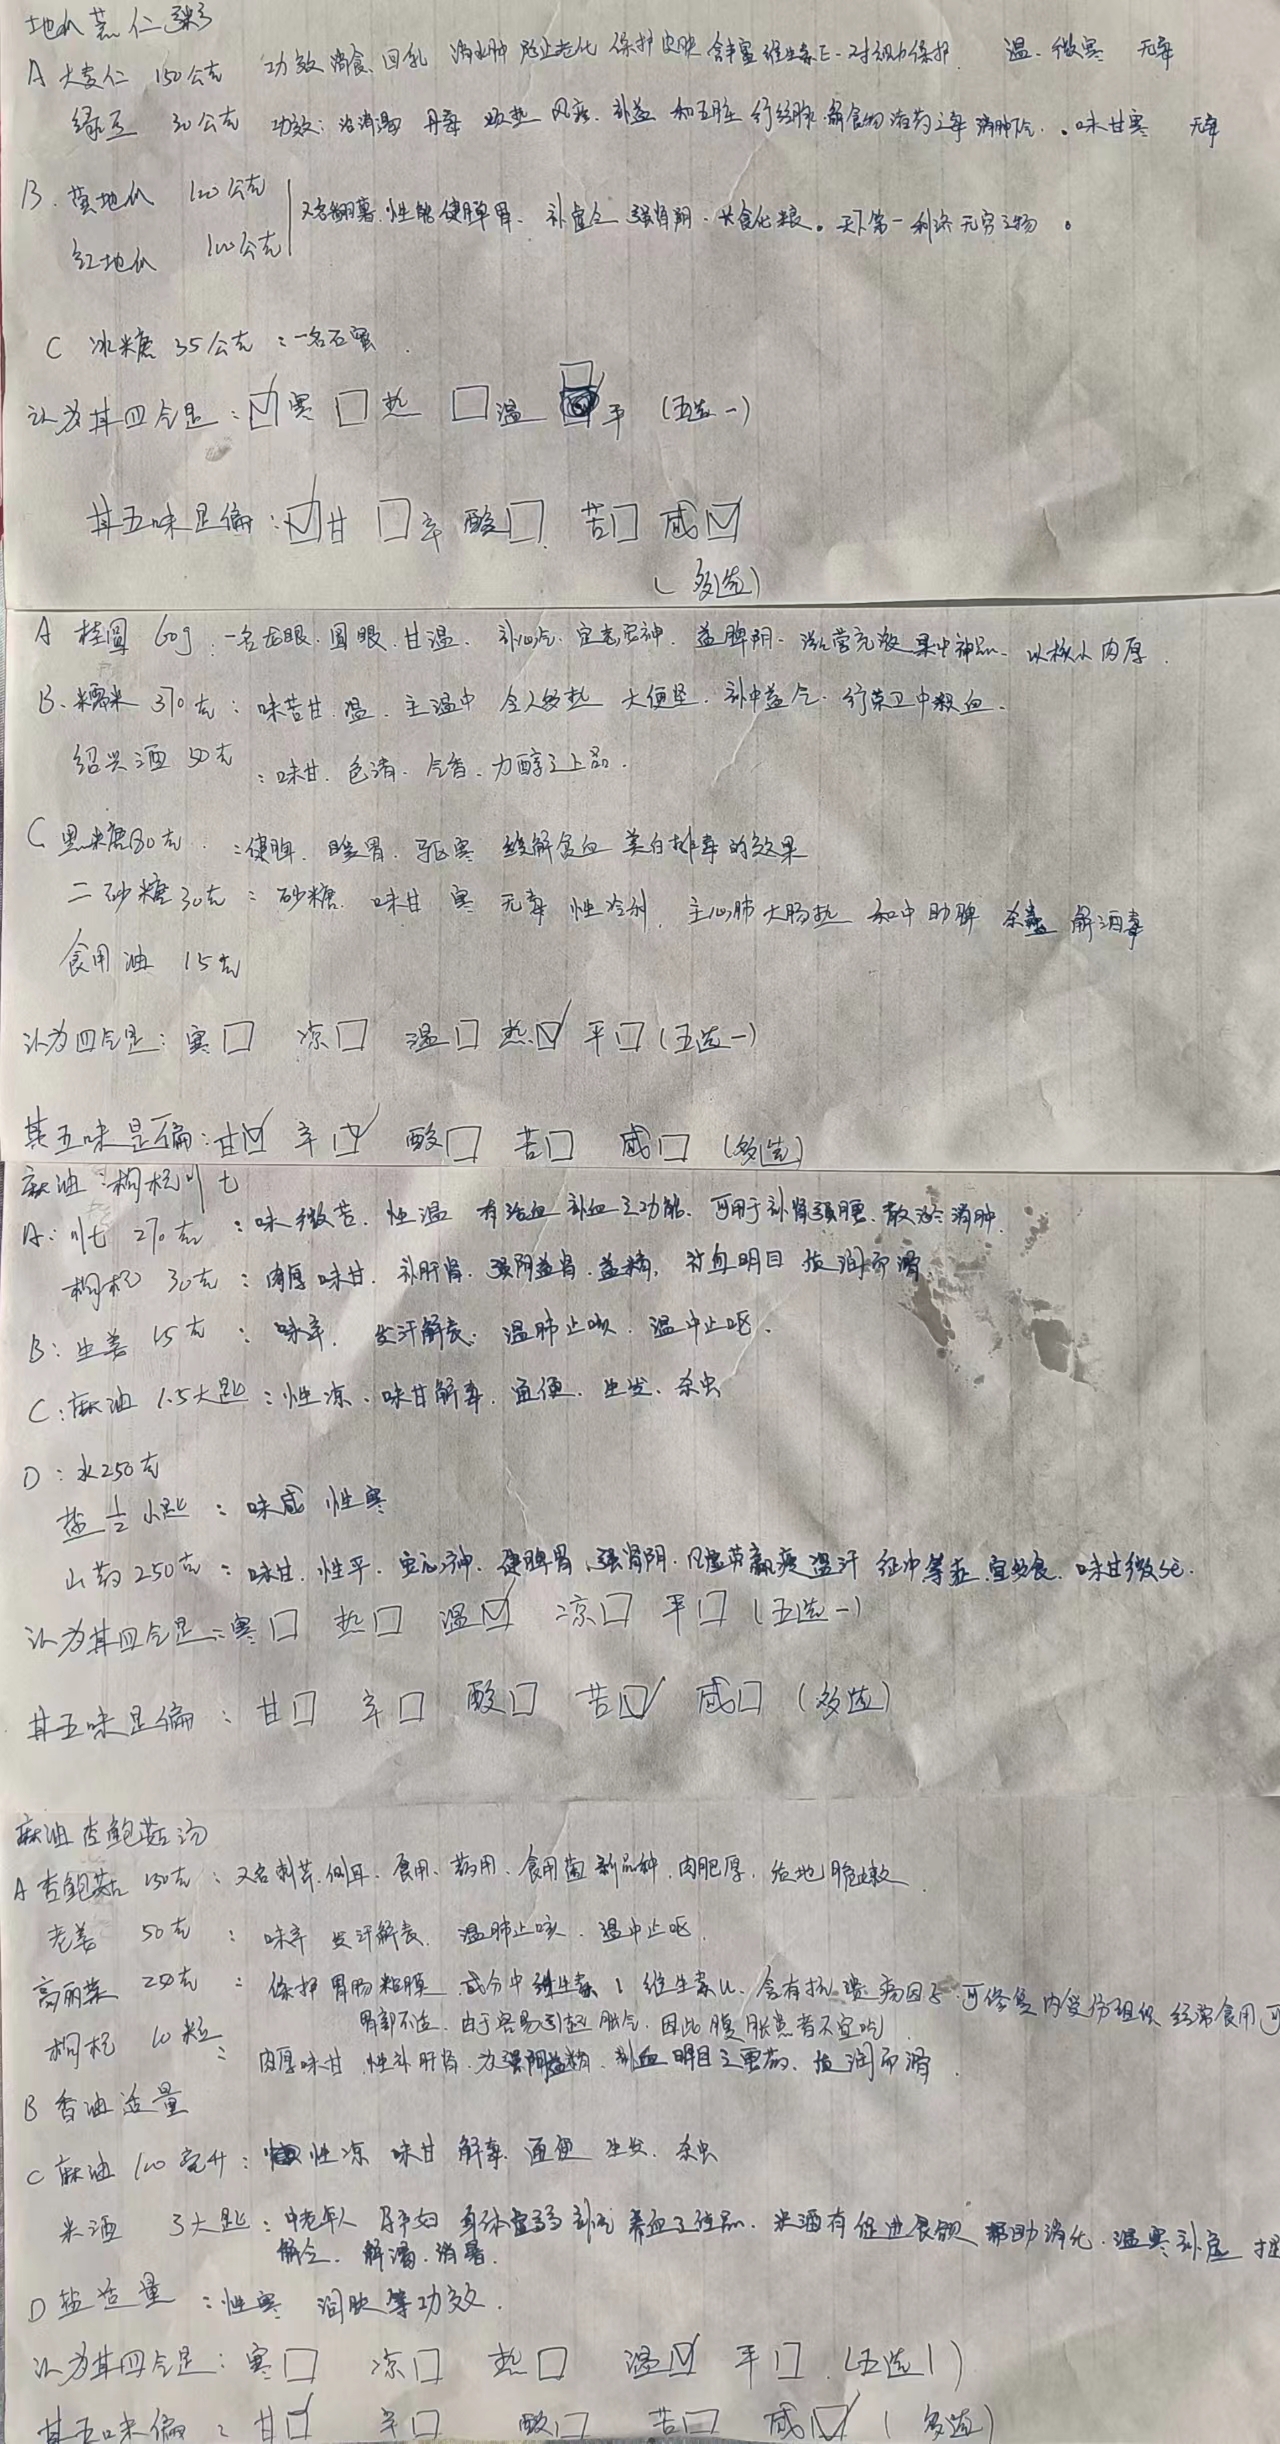 地瓜薏仁粥
A 大麦仁 150公克 功效 消食、回乳 消水肿 防止老化 保护皮肤 含丰富维生素E、对视力保护 温、微寒 无毒
绿豆 30公克 功效:治消渴 丹毒 烦热 风疹、补益 和五脏 行经脉、解食物 诸药之毒 消肿下气、味甘寒 无毒
B、黄地瓜 120公克
红地瓜 100公克
又名番薯、性能健脾胃、补虚乏 强肾阴、共食化粮。天下第一利济无穷之物。
C 冰糖 35公克:一名石蜜
认为其四气是:☑寒 □热 □温 平(五选一)
其五味是偏:☑甘 □辛 酸□ 苦□ 咸☑
(多选)
A 桂圆 60g:一名龙眼、圆眼、甘温、补心气、定志安神、益脾阴、滋营充液 果中神品、以核小肉厚
B、糯米 370克:味苦甘、温、主温中 令人多热 大便坚、补中益气、行荣卫中积血、
绍兴酒 50克:味甘、色清、气香、力醇之上品、
C 黑糖80克:健脾、暖胃、驱寒 缓解贫血 美白排毒的效果
二砂糖 30克:砂糖、味甘 寒 无毒 性冷利、主心肺大肠热 和中助脾 杀蛊 解酒毒
食用油 15克
认为四气是:寒□ 凉□ 温□ 热☑ 平□(五选一)
其五味是偏:甘☑ 辛☑ 酸□ 苦□ 咸□(多选)
麻油枸杞川七
A:川七 270克:味微苦、性温 有活血 补血之功能、可用于补肾强腰、散淤消肿、
枸杞 30克:肉厚味甘、补肝肾、强阴益肾、益精、补血明目 质润而滑
B:生姜 15克:味辛、发汗解表、温肺止咳、温中止呕、
C:麻油 1.5大匙:性凉、味甘解毒、通便、生发、杀虫
D:水250克
盐 1/2小匙:味咸 性寒
山药250克:味甘、性平、安心神、健脾胃、强肾阴、风虚劳羸瘦盗汗 怔忡等症、宜多食、味甘微
认为其四气是:寒□ 热□ 温☑ 凉□ 平□(五选一)
其五味是偏:甘□ 辛□ 酸□ 苦☑ 咸□(多选)
麻油杏鲍菇汤
A 杏鲍菇 150克:又名刺芹侧耳、食用、药用、食用菌新品种、肉肥厚、质地脆嫩
老姜 50克:味辛 发汗解表、温肺止咳、温中止呕、
高丽菜 250克:保护胃肠粘膜 成分中维生素 维生素u、含有抗溃疡因子、可修复内受伤组织 经常食用 可
胃部不适、由于容易引起胀气、因此腹胀患者不宜吃
枸杞 10粒:肉厚味甘 性补肝肾、为强阴益精、补血明目之要药、质润而滑
B 香油适量
C 麻油 100毫升:性凉 味甘 解毒、通便 生发、杀虫
米酒 3大匙:中老年人 孕产妇 身体虚弱 补气养血之佳品、米酒有促进食欲 帮助消化、温寒补虚 提
解乏、解渴、消暑、
D 盐适量:性寒 润肤等功效、
认为其四气是:寒□ 凉□ 热□ 温☑ 平□(五选1)
其五味偏:甘☑ 辛□ 酸□ 苦□ 咸☑(多选)